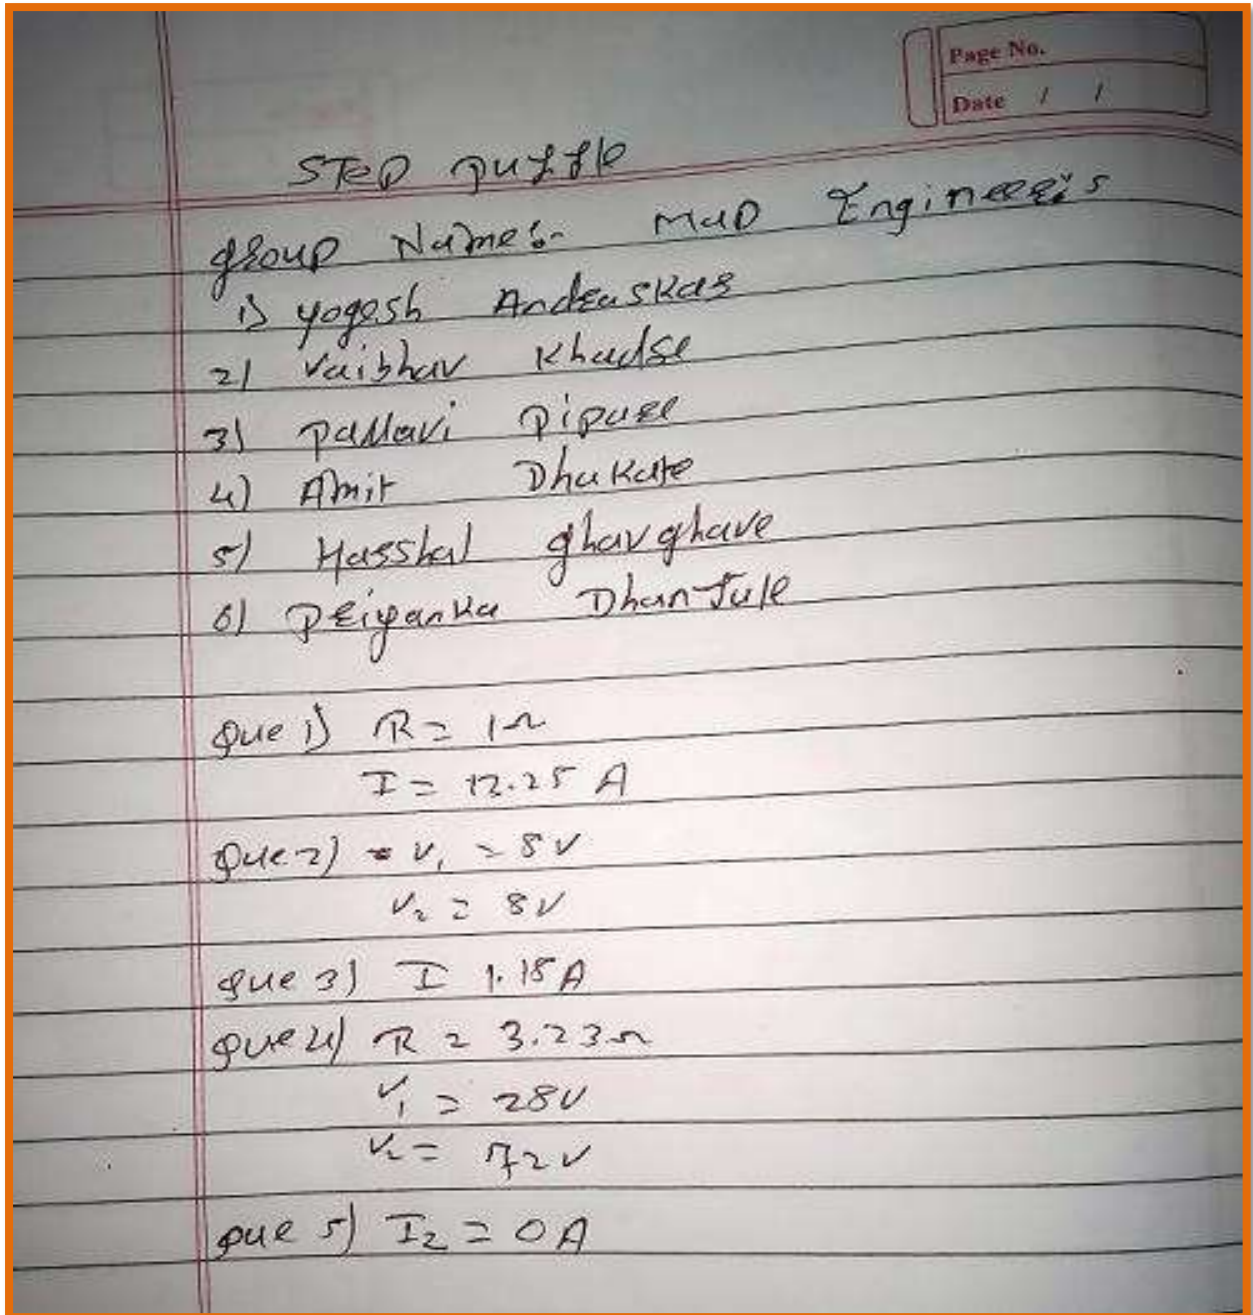 Page No.
Date / /
Step puzzle
group Name:- Mad Engineer's
1) yogesh Andraskar
2) Vaibhav Khadse
3) Pallavi Pipare
4) Amit Dhakate
5) Harshal ghavghave
6) Priyanka Dhantule
Que 1) R = 1Ω
I = 12.25 A
Que 2) V₁ = 8V
V₂ = 8V
Que 3) I 1.15A
Que 4) R = 3.23Ω
V₁ = 28V
V₂ = 72V
Que 5) I₂ = 0A